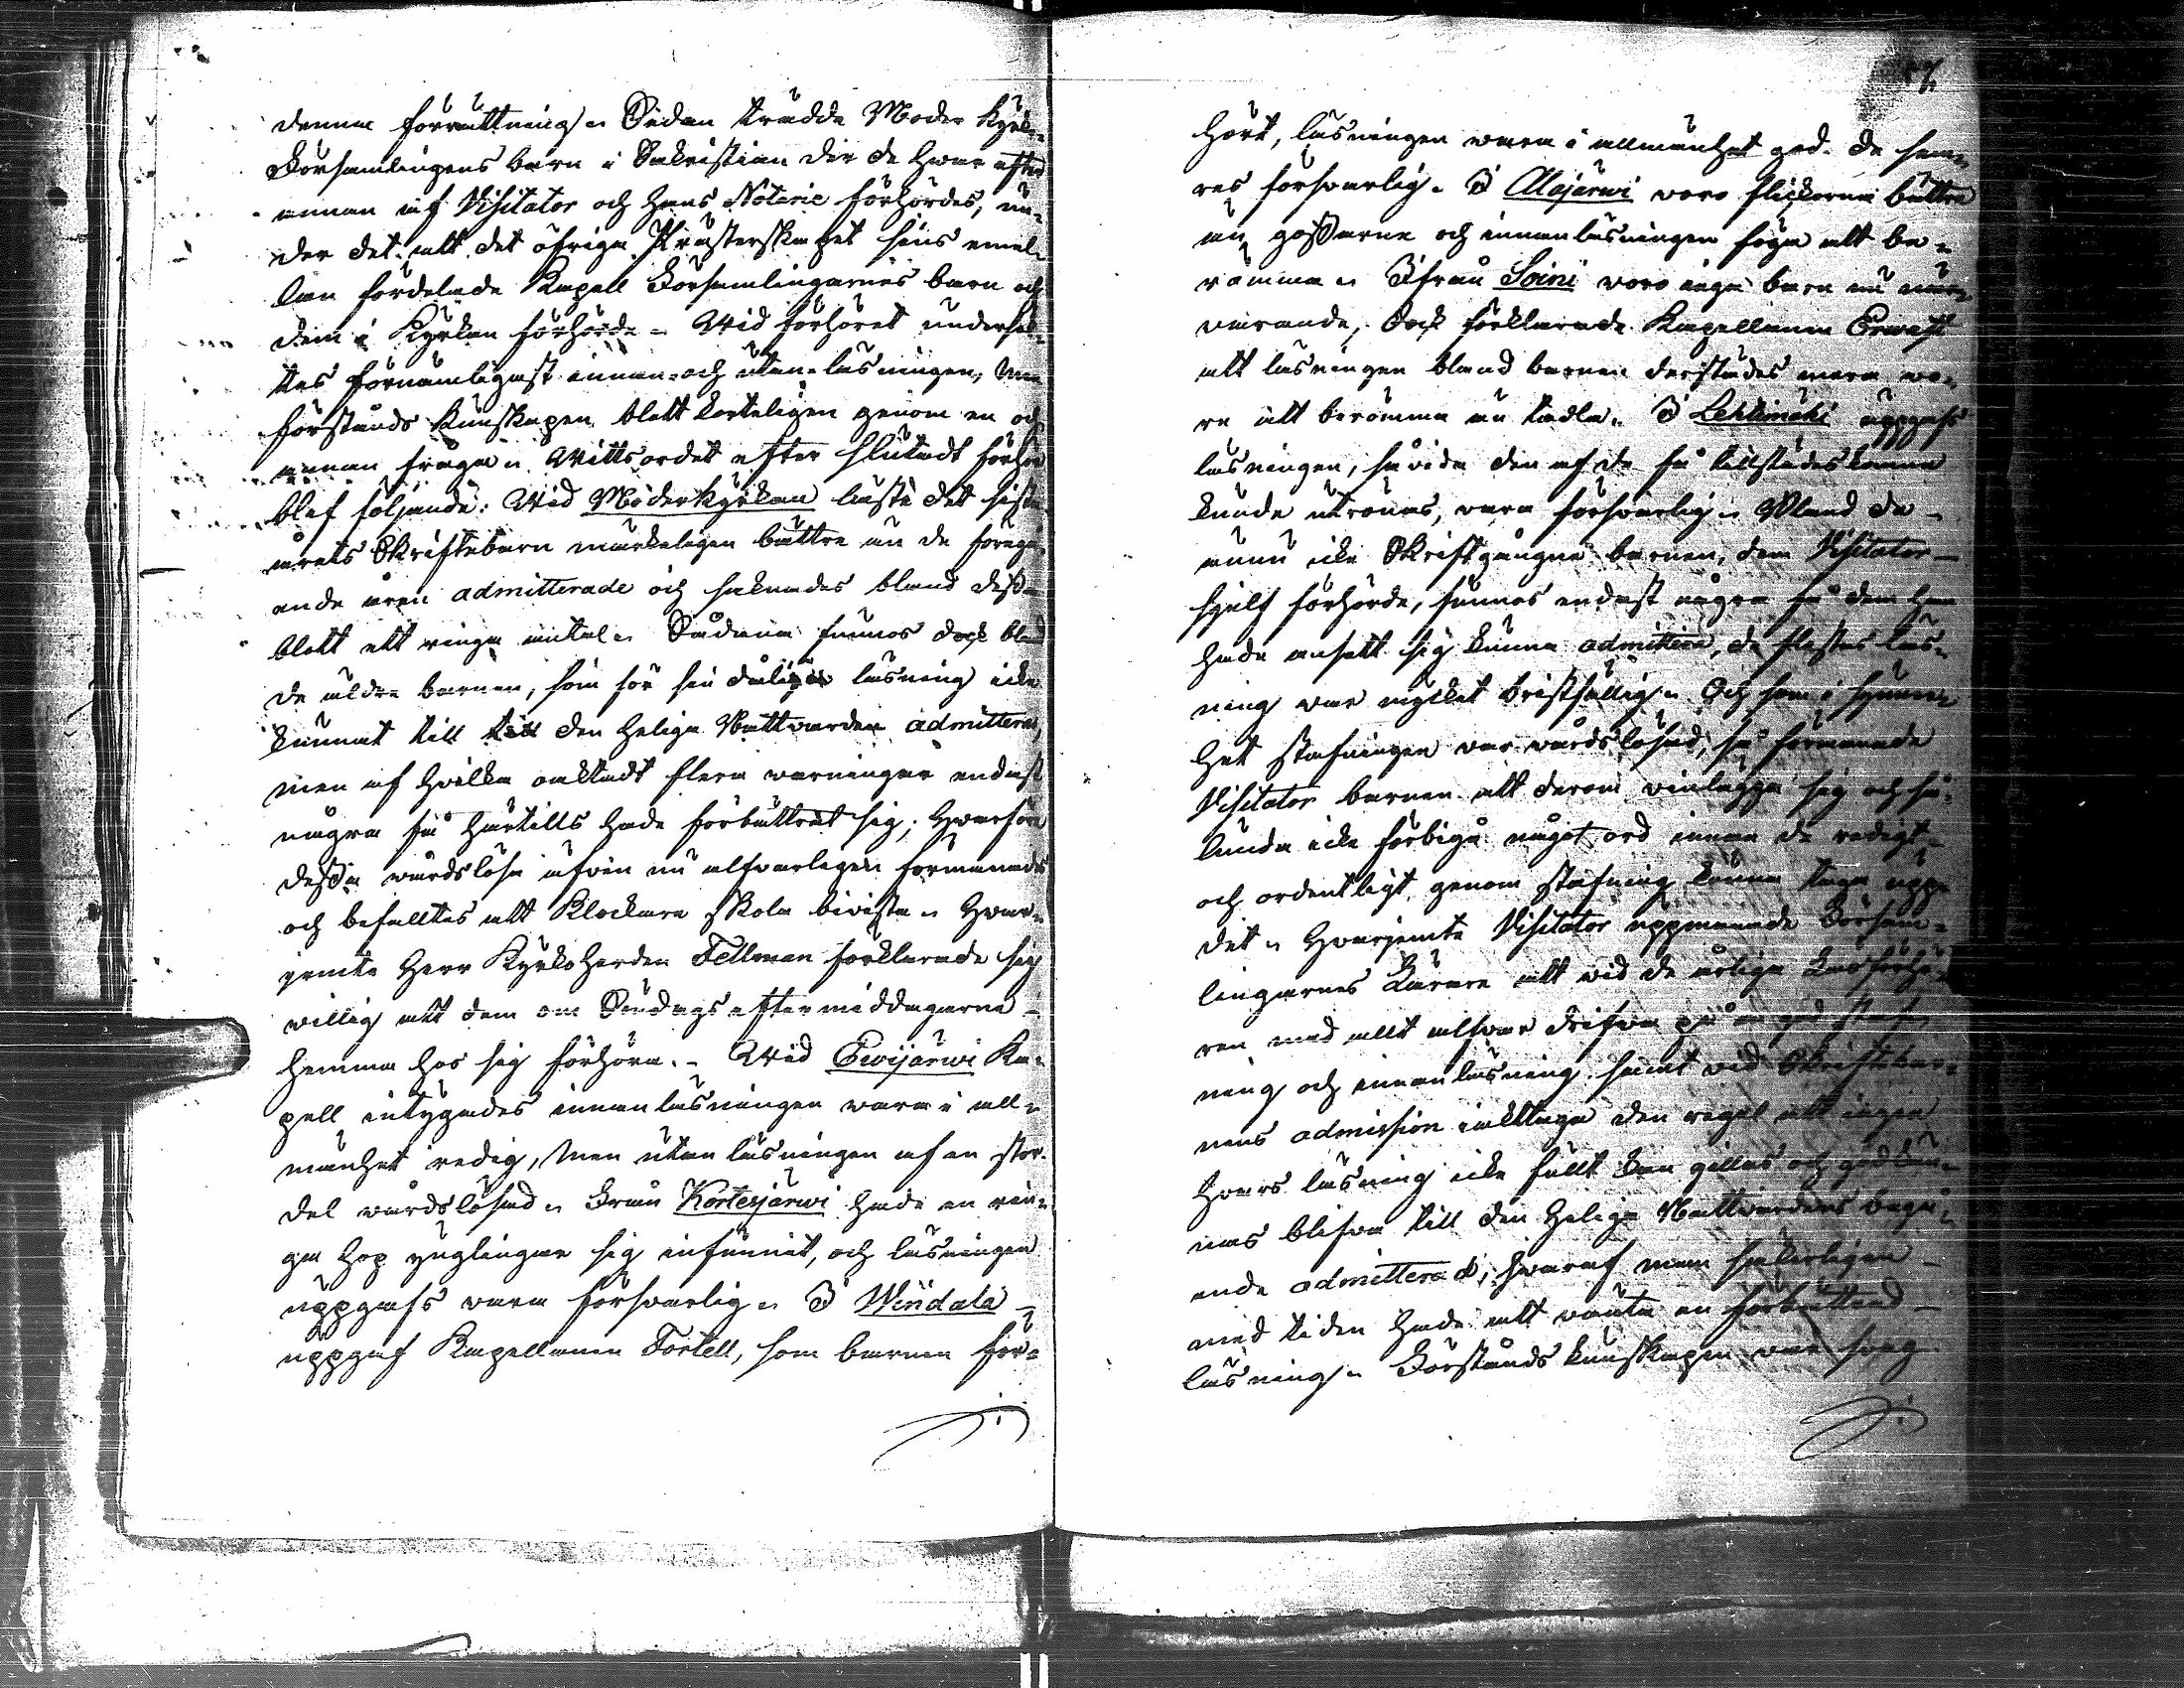 denna förrättning. Sedan trädde Moder Kyrk-
Församlingens barn i Sakristian der de hwar efter
annan af Visitator och hans Notarie förhördes, un-
der det att det öfriga Prästerskapet sins emel-
lan fördelade Kapell Församlingarnes barn och
dem i Kyrkan förhörde. Wid förhöret
förnämligast innan- och utan-läsningen, men
förstånds kunskapen blott korteligen genom en och
annan fråga. Wittsordet efter slutadt förhör
blef följande: Wid Moderkyrkan läste det sista
årets Skriftebarn märkeligen bättre än de föregå-
ende åren admitterade och saknades bland dess
blott ett ringa antal. Sådana funnos dock bland
de äldre barnen, som för sin dåliga läsning icke
kunnat till till den heliga Nattwarden admitteras,
men af hvilka oaktadt flera warningar endast
några få härtills hade förbättrat sig; hwarföre
dessa wårdslösa äfven nu alfvarligen förmanades
och befalltes att Klockare skola bivista. Hwar-
jemte Herr Kyrkoherden Fellman förklarade sig
willig att dem om Söndags eftermiddagarne
hemma hos sig förhöra. Wid Ewijärwi Ka-
pell intygades innanläsningen wara i all-
mänhet redig, men utan läsningen af en stor
del wårdslösad. Från Kortesjärwi hade en rin-
ga hop ynglingar sig infunnit, och läsningen
uppgafs wara försvarlig. I Windala
uppgaf Kapellanen Forsell, som barnen för-
hört, läsningen wara i allmänhet god. de sem-
res försvarlig. I Alajärwi woro flickorna bättre
än gossarne och innanläsningen föga att be-
römma. Ifrån Soini woro inga barn nu när-
varande, Dock förklarade Kapellanen Erwast
att läsningen bland barnen derstädes mera wo-
re att berömma än tadla. I Lehtimäki uppgafs
läsningen, såvida den af de få tillstädeskomna
kunde utrönas, vara försvarlig. Bland de
ännu icke Skriftgångna barnen, dem Visitator
sjelf förhörde, funnos endast några få dem han
hade ansett sig kunna admittera, de flestas läs-
ning war mycket bristfällig. Och som i synner-
het stafningen var wårdslösad, så förmanade
Visitator barnen att derom vinlägga sig och så-
lunda icke förbigå något ord innan de redigt
och ordentligt genom stafning kunna taga upp
det. Hvarjemte Visitator uppmanade Försam-
lingarnes Lärare att wid de årliga Läsförhö-
ren med allt alfvar drifva på en god staf-
ning och innanläsning samt vid Skriftebar-
nens admission iakttaga den regel att ingen
hvars läsning icke fullt kan gillas och godkän-
nas blifva till den Heliga Nattwardens begå-
ende admitterad, hwaraf man säkerligen
med tiden hade att vänta en förbättrad
läsning. Förstånds kunskapen war svag